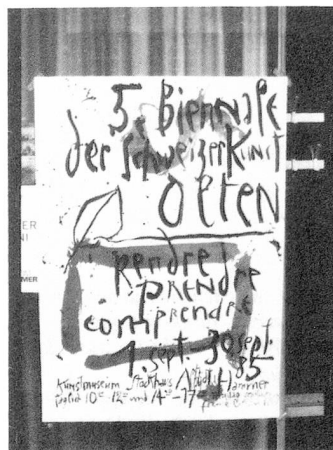 5. Biennale
der Schweizer Kunst
Olten
rendre
prendre
comprendre
1. sept. 30 sept.
85
Kunstmuseum Stadthaus Altstadt Hammer
täglich 10°° - 12°° und 14°° - 17°°
ER
NI
MMER